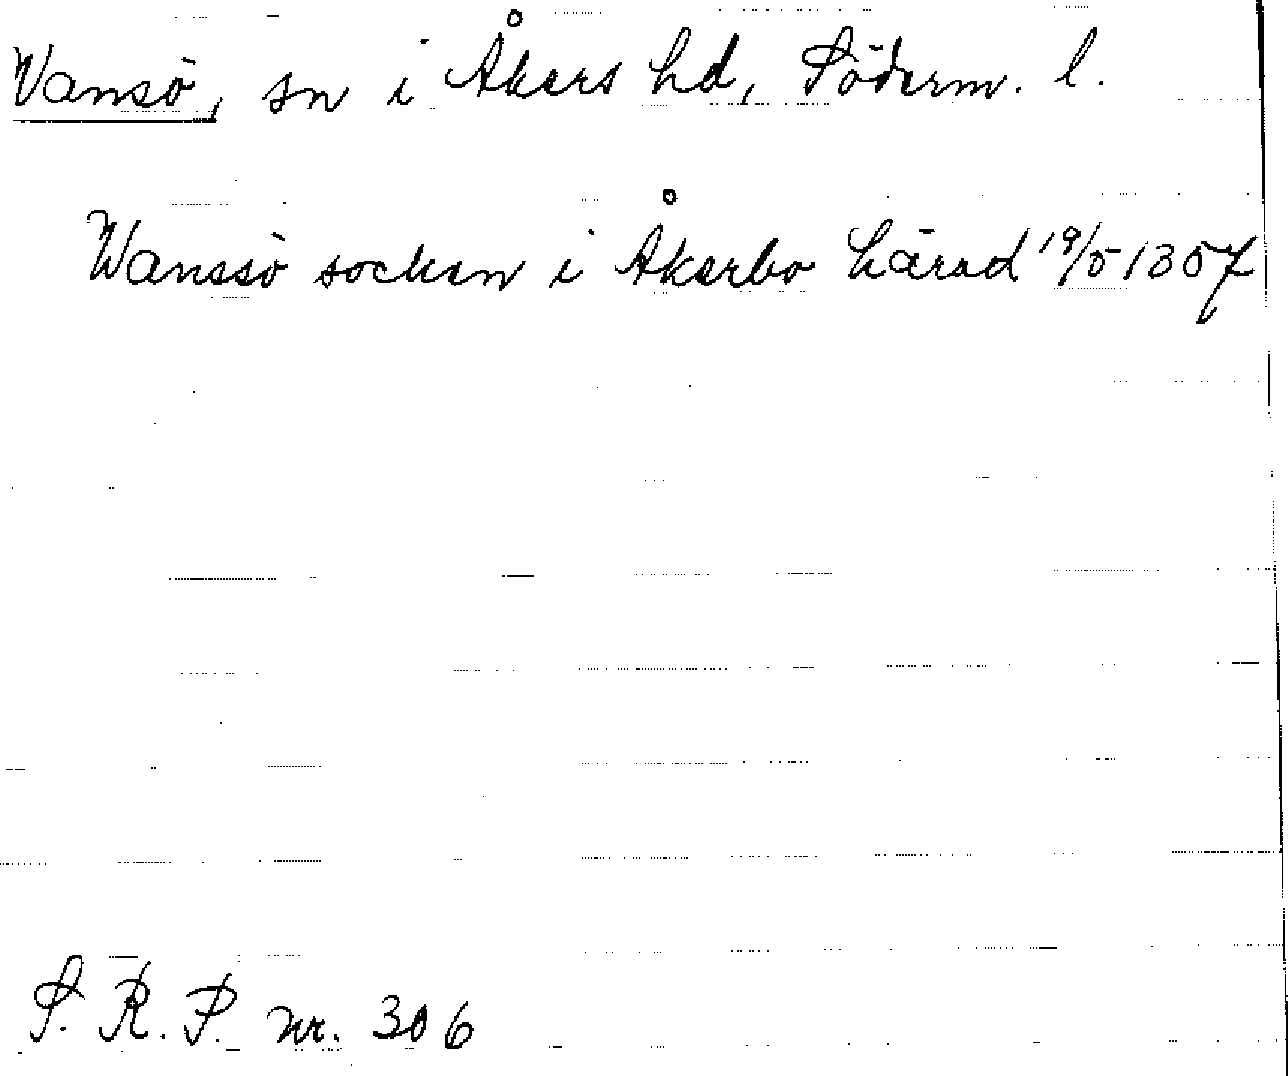 Vansö, sn i Åkers hd, Söderm. l.
Wanssö socken i Åkerbo härad 19/5 1357
S. R. P. nr. 306